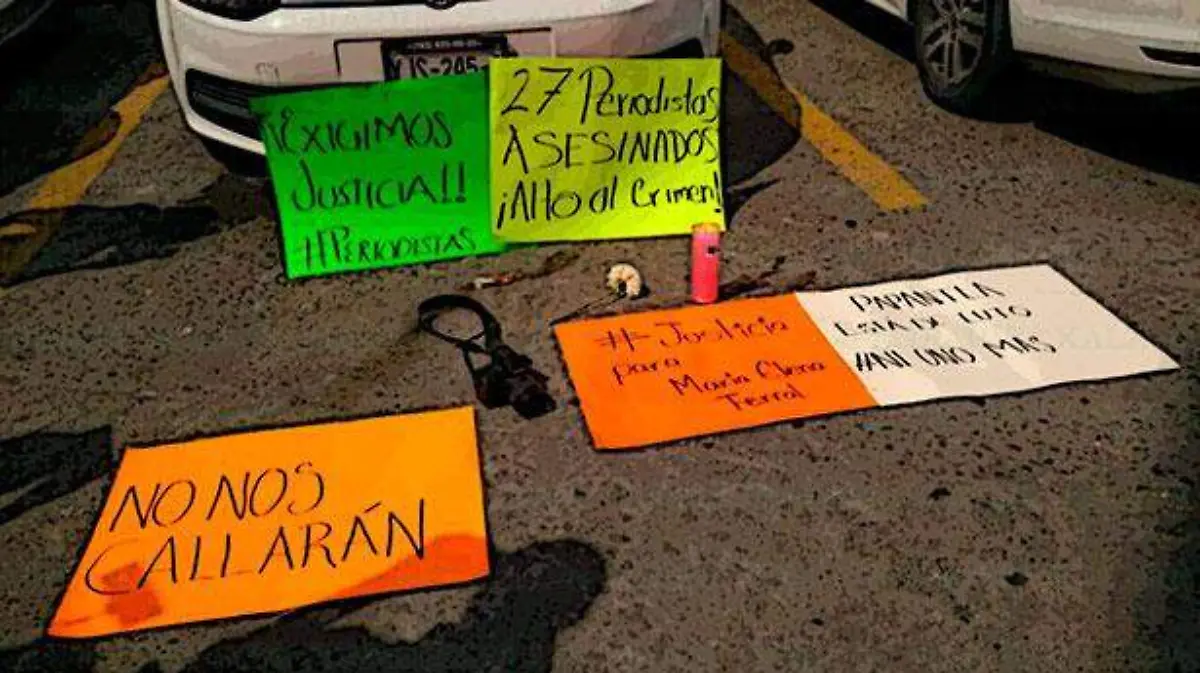 ¡EXIGIMOS
JUSTICIA!!
#PERIODISTAS
27 Periodistas
ASESINADOS
¡Alto al Crimen!
#Justicia
para
Maria Elena
Ferral
PAPANTLA
ESTA DE LUTO
#NI UNO MAS
NO NOS
CALLARÁN